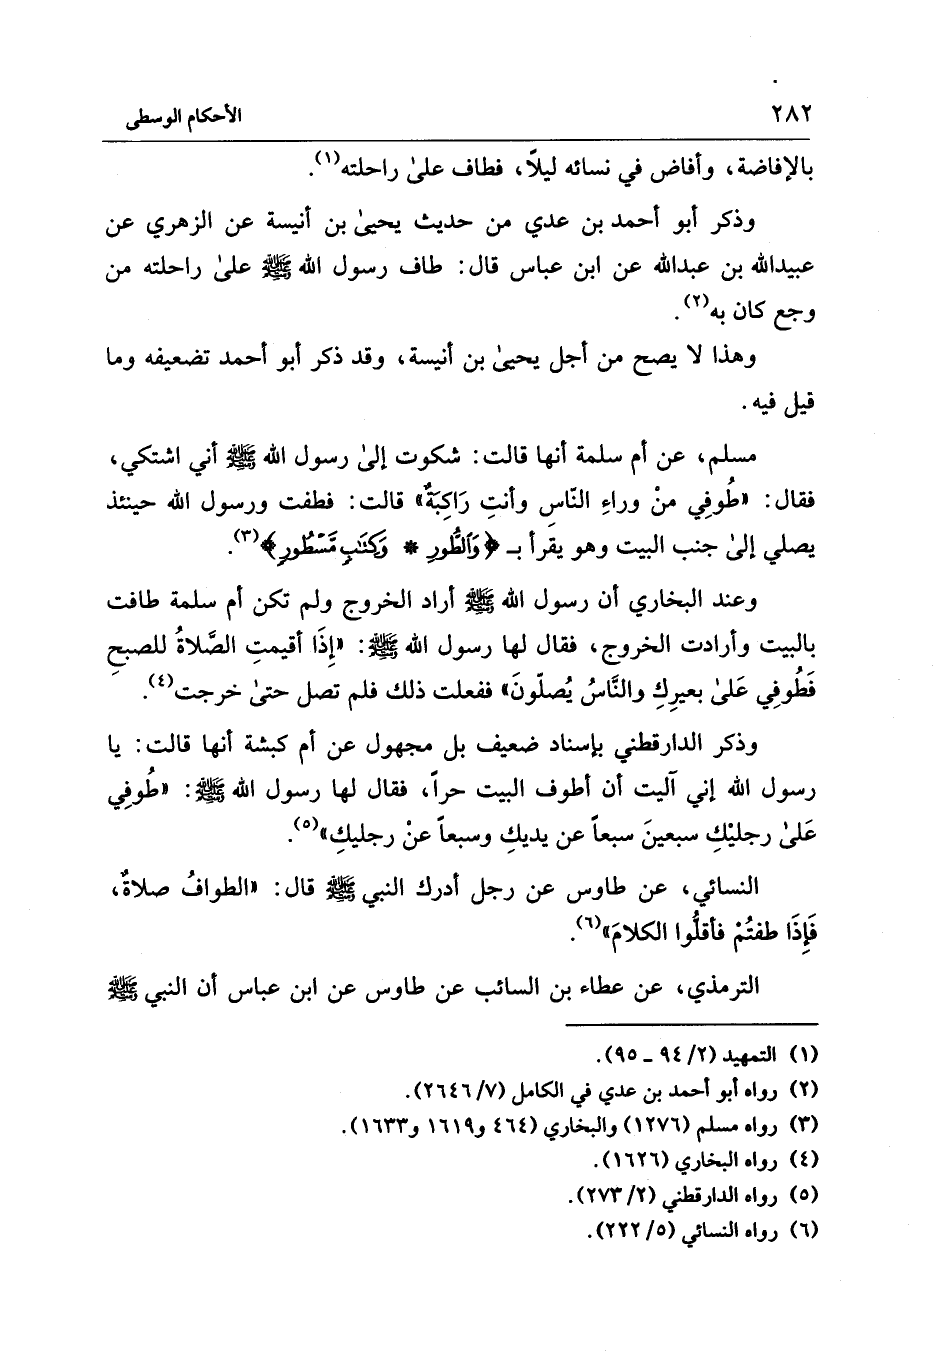 ٢٨٢ الأحكام الوسطى
بالإفاضة، وأفاض في نسائه ليلاً، فطاف علىٰ راحلته(١).
وذكر أبو أحمد بن عدي من حديث يحيىٰ بن أنيسة عن الزهري عن
عبيدالله بن عبدالله عن ابن عباس قال: طاف رسول الله ﷺ علىٰ راحلته من
وجع كان به(٢).
وهذا لا يصح من أجل يحيىٰ بن أنيسة، وقد ذكر أبو أحمد تضعيفه وما
قيل فيه.
مسلم، عن أم سلمة أنها قالت: شكوت إلىٰ رسول الله ﷺ أني اشتكي،
فقال: «طُوفِي منْ وراءِ النّاسِ وأنتِ رَاكِبَةٌ» قالت: فطفت ورسول الله حينئذ
يصلي إلىٰ جنب البيت وهو يقرأ بـ ﴿وَٱلطُّورِ * وَكِتَٰبٍ مَّسْطُورٍ﴾(٣).
وعند البخاري أن رسول الله ﷺ أراد الخروج ولم تكن أم سلمة طافت
بالبيت وأرادت الخروج، فقال لها رسول الله ﷺ: «إِذَا أقيمتِ الصَّلاةُ للصبحِ
فَطُوفِي عَلىٰ بعيرِكِ والنَّاسُ يُصلّونَ» ففعلت ذلك فلم تصل حتىٰ خرجت(٤).
وذكر الدارقطني بإسناد ضعيف بل مجهول عن أم كبشة أنها قالت: يا
رسول الله إني آليت أن أطوف البيت حراً، فقال لها رسول الله ﷺ: «طُوفِي
عَلىٰ رجليْكِ سبعينَ سبعاً عن يديكِ وسبعاً عنْ رجليكِ»(٥).
النسائي، عن طاوس عن رجل أدرك النبي ﷺ قال: «الطوافُ صلاةٌ،
فَإِذَا طفتُمْ فأقلُّوا الكلامَ»(٦).
الترمذي، عن عطاء بن السائب عن طاوس عن ابن عباس أن النبي ﷺ
(١) التمهيد (٢/ ٩٤ ـ ٩٥).
(٢) رواه أبو أحمد بن عدي في الكامل (٧/ ٢٦٤٦).
(٣) رواه مسلم (١٢٧٦) والبخاري (٤٦٤ و١٦١٩ و١٦٣٣).
(٤) رواه البخاري (١٦٢٦).
(٥) رواه الدارقطني (٢/ ٢٧٣).
(٦) رواه النسائي (٥/ ٢٢٢).